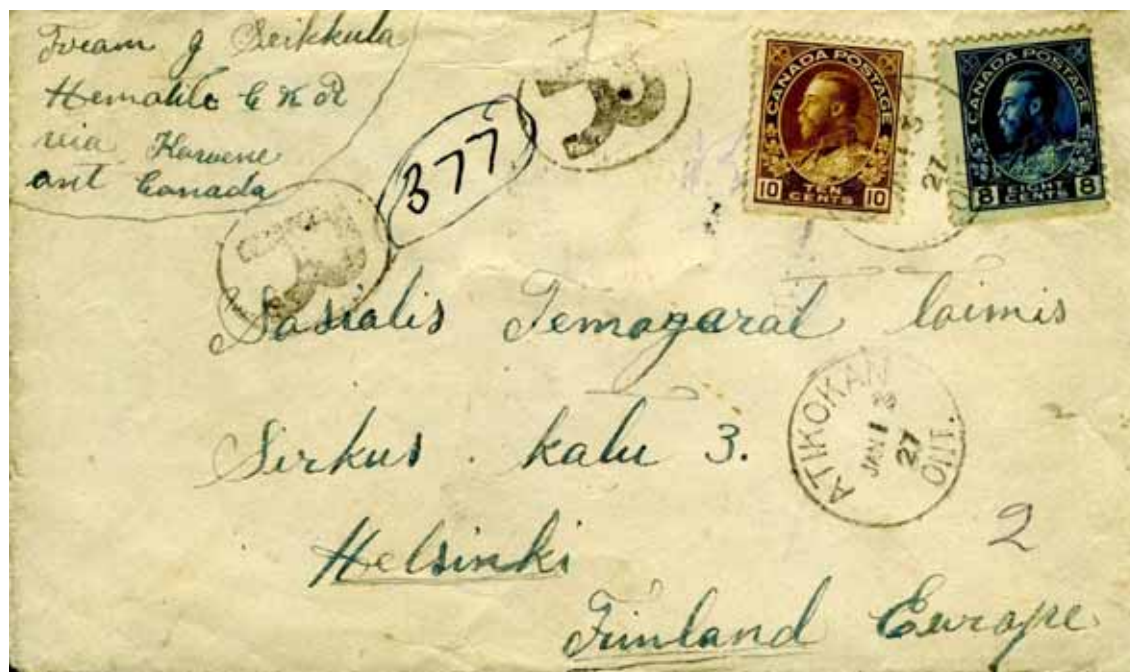 J Seikkula
Hematite C N R
via Kawene
ont Canada
377
R
R
CANADA POSTAGE
10 TEN CENTS 10
CANADA POSTAGE
8 EIGHT CENTS 8
27
Sosialis Temograral toimis
Sirkus kalu 3.
ATIKOKAN
JAN 1 3
27
ONT.
2
Helsinki
Finland Europe